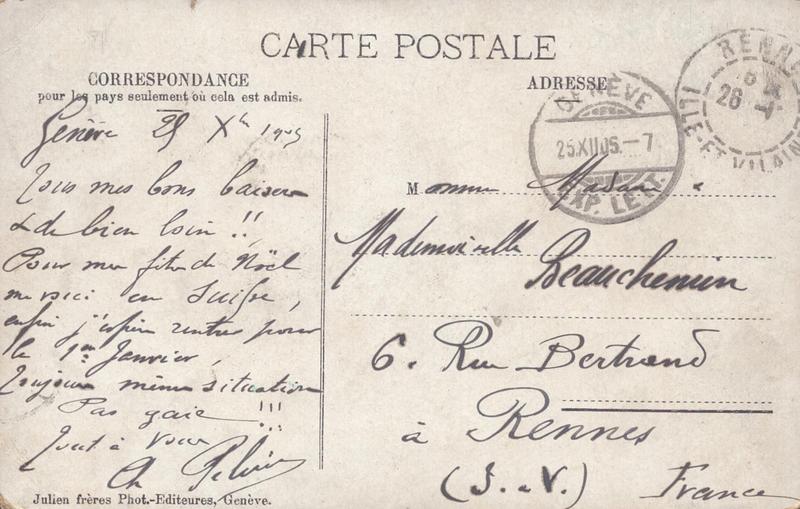 CARTE POSTALE
CORRESPONDANCE
pour les pays seulement où cela est admis.
ADRESSE
GENÈVE
25.XII.05.-7
EXP. LETT.
RENNES
26
ILLE-ET-VILAINE
Genève 25 Xbre 1905
Tous mes bons baisers
& de bien loin !!
Pour mes fêtes de Noël
me voici en Suisse,
enfin j'espère rentrer pour
le 1er Janvier,
Toujours même situation
Pas gaie !!!
Tout à vous
Ch
Monsieur Madame &
Mademoiselle
Beauchemin
6. Rue Bertrand
à Rennes
(I. & V.) France
Julien frères Phot.-Editeures, Genève.